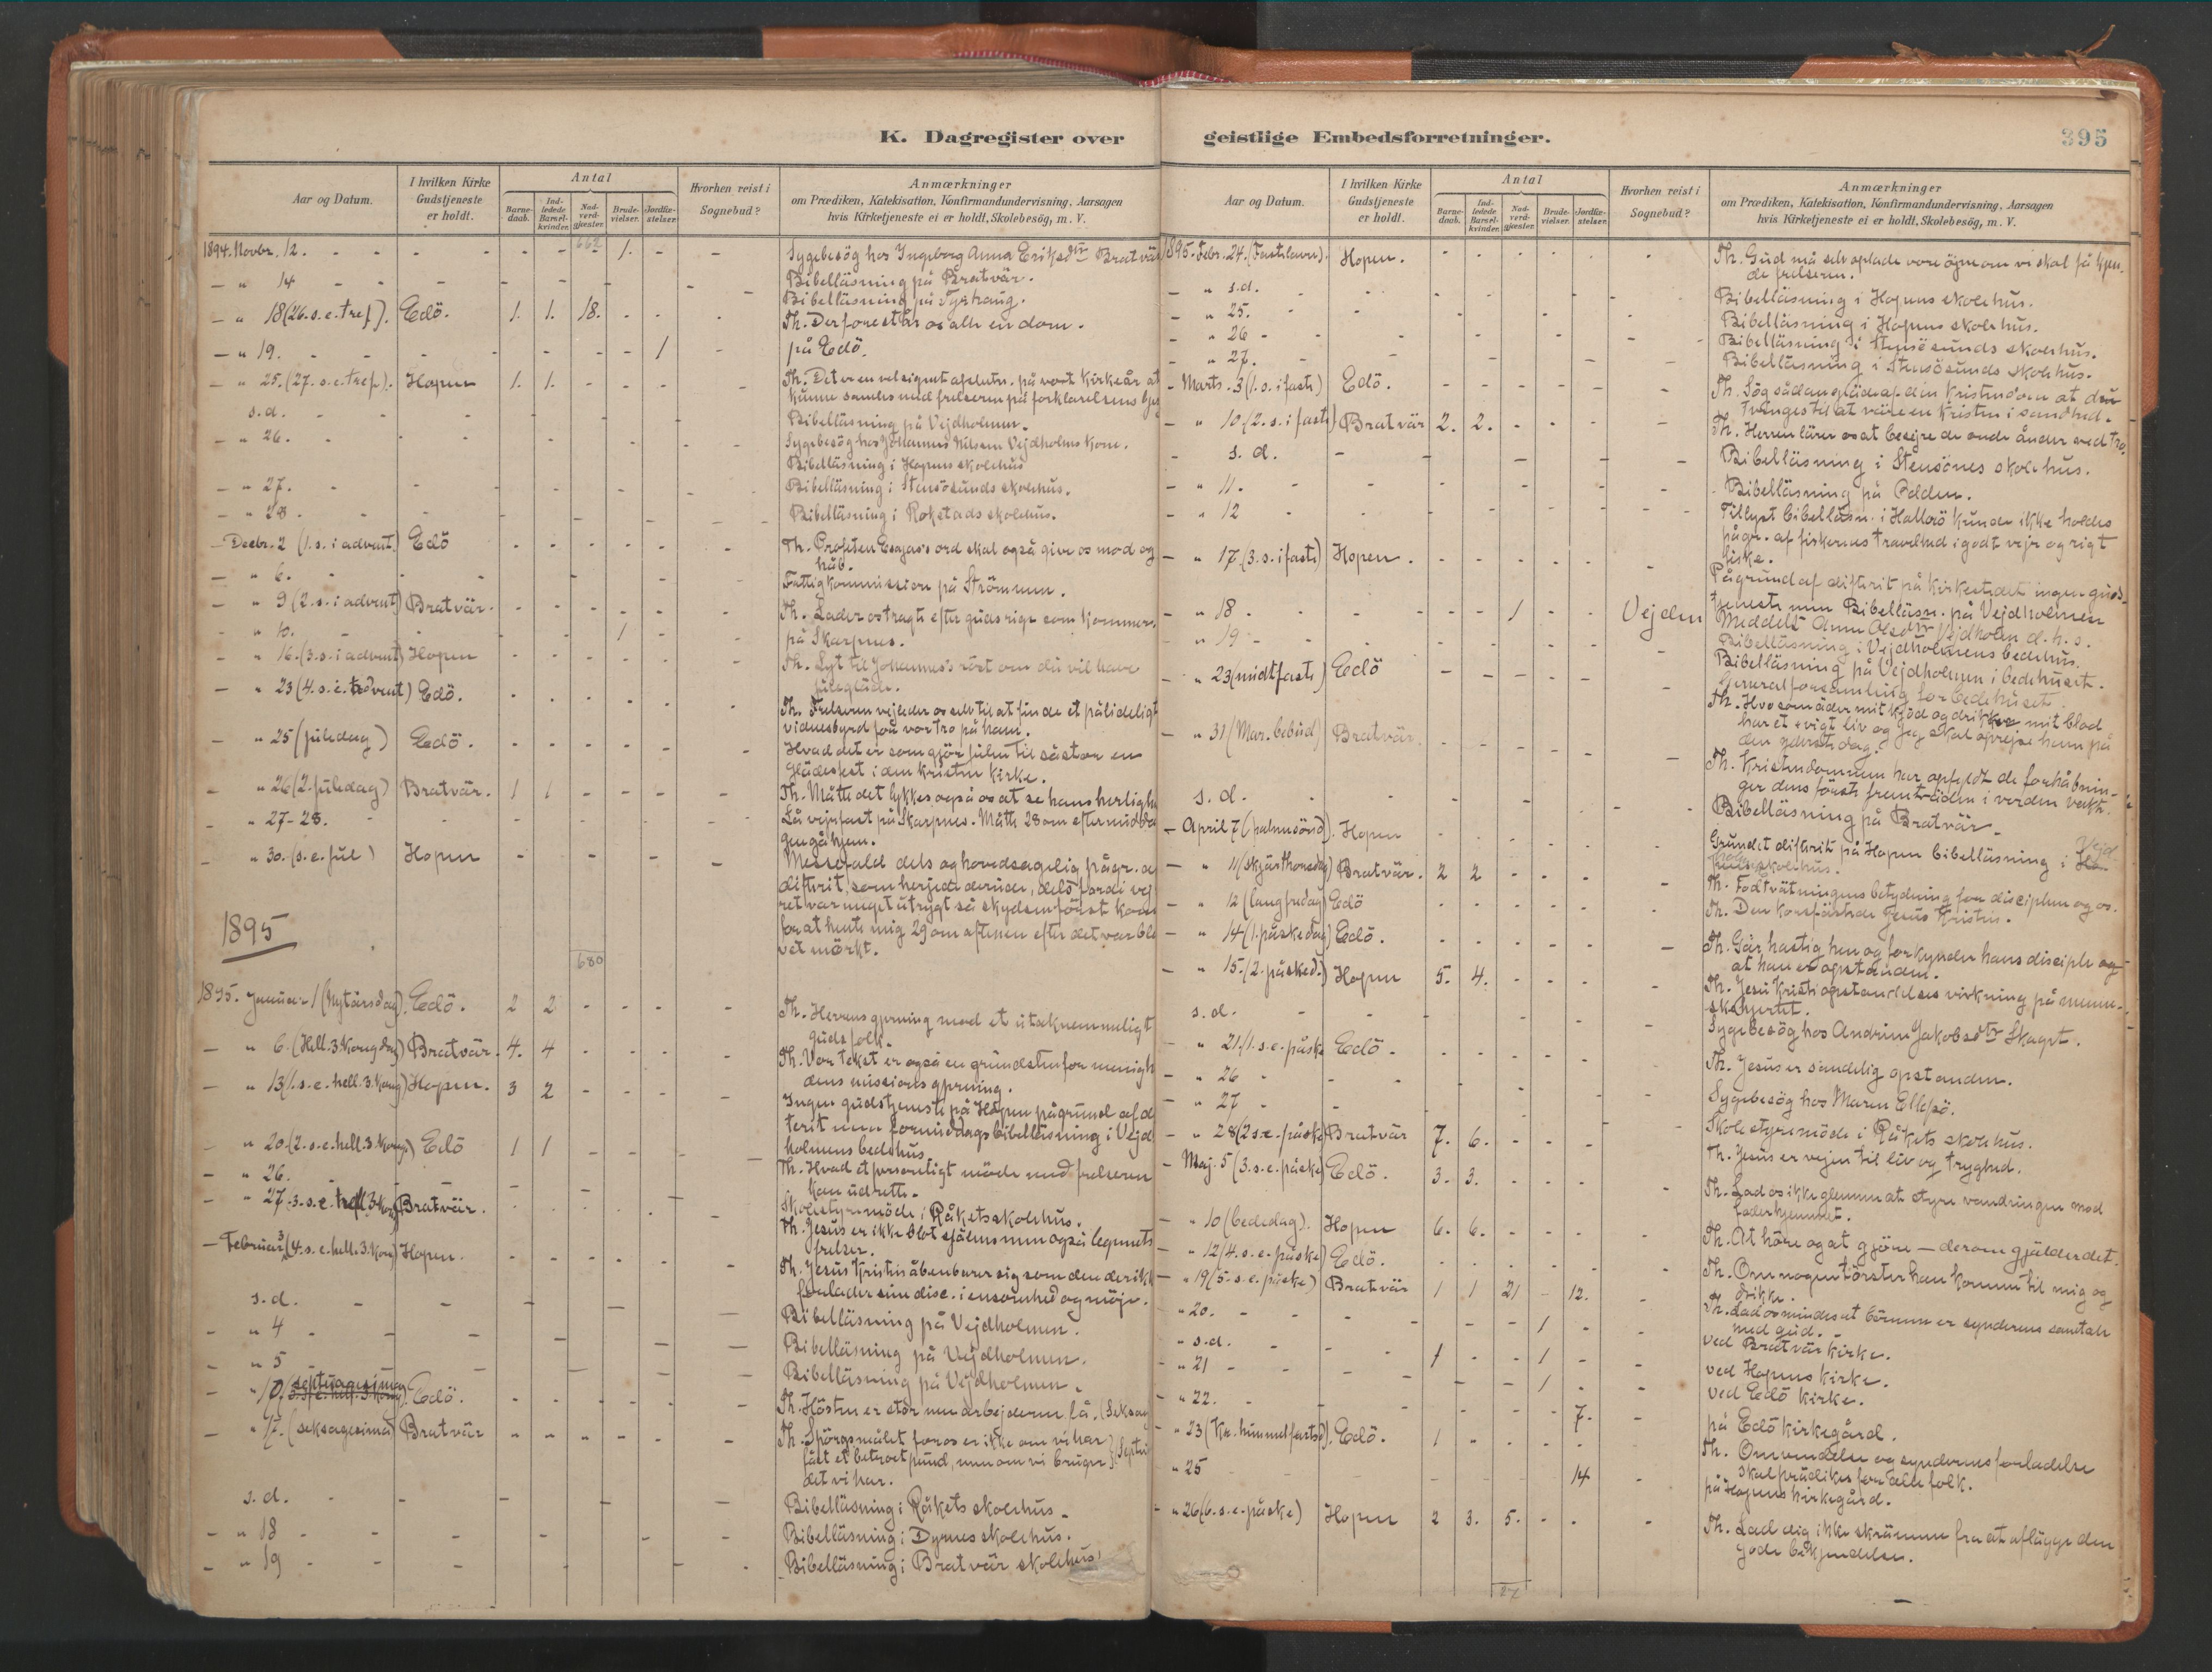 K. Dagregister over
Aar og Datum.
I hvilken Kirke Gudstjeneste er holdt.
Antal
Barne-daab.
Ind-ledede Barsel-kvinder.
Nad-verd-gjæster.
Brude-vielser.
Jordfæ-stelser.
Hvorhen reist i Sognebud?
Anmærkninger
om Prædiken, Katekisation, Konfirmandundervisning, Aarsagen
hvis Kirketjeneste ei er holdt, Skolebesög, m. V.
662
1894. Novbr. 12. - - - - - - 1. - - Sygebesög hos Ingeborg Anna Eriksdtr Bratvär
- " 14 - - - - - - - - Bibelläsning på Bratvär.
Bibelläsning på Tyrhaug.
- " 18 (26. s. e. tref). Edö. 1. 1. 18. - - - Th. Derfore står os alle en dom.
- " 19. - - - - - - - 1 - på Edö.
- " 25. (27. s. e. tref). Hopen 1. 1. - - - - Th. Det er en velsignet afslutn. på vort kirkeår at
kunne samles med frelseren på forklarelsens
s. d. - - - - - - - - Bibelläsning på Vejdholmen.
- " 26. - - - - - - - - Sygebesög hos Johannes Nilsen Vejdholms kone.
Bibelläsning i Hopens skolehus
- " 27. - - - - - - - - Bibelläsning i Stensösunds skolehus.
- " 28. - - - - - - - - Bibelläsning i Rokstads skolehus.
- Decbr. 2 (1. s. i advent.) Edö - - - - - - Th. Profeten Esajas's ord skal også give os mod og
håb.
- " 6. - - - - - - - - Fattigkommission på Strömmen.
- " 9 (2. s. i advent) Bratvär. - - - - - - Th. Lader os tragte efter guds rige som kommer.
- " 10. - - - - - - 1 - - på Skarpnes.
- " 16. (3. s. i advent) Hopen - - - - - - Th. Lyt til Johannes's röst om du vil have
juleglæde.
- " 23 (4. s. i. advent) Edö. - - - - - - Th. Frelseren vejleder os selv til at finde et pålideligt
vidnesbyrd for vor tro på ham.
- " 25 (juledag) Edö. - - - - - - Hvad det er som gjör julen til så stor en
glædesfest i den kristne kirke.
" 26 (2. juledag) Bratvär. 1 1 - - - - Th. Måtte det lykkes også os at se hans herlighe
- " 27-28. - - - - - - - - Lå vejrfast på Skarpnes. Måtte 28 om eftermidda
gen gå hjem.
- " 30. (s. e. jul) Hopen - - - - - - Messefald dels og hovedsagelig pågr. a
difterit, som herjede derude, dels fordi vej
ret var meget utrygt så skydsen först kom
for at hente mig 29 om aftenen efter det var ble
vet mörkt.
1895
680
1895. Januar 1 (Nytårsdag). Edö. 2 2 - - - - Th. Herrens gjerning med et utaknemmeligt
guds folk.
- " 6. (Hell. 3 kongedag) Bratvär. 4. 4 - - - - Th. Vor tekst er også en grundsten for menigh
dens missions gjerning.
- " 13 (1. s. e. hell. 3. kong) Hopen. 3 2 - - - - Ingen gudstjeneste på Hopen på grund af di
terit men formiddags bibelläsning i Vejd
holmens bedehus.
- " 20 (2. s. e. hell. 3. kong) Edö 1 1 - - - - Th. Hvad et personligt möde med frelseren
kan udrette.
- " 26. - - - - - - - - Skolestyremöde i Råkets skolehus.
- " 27. 3. s. e. hell. 3 kong Bratvär. - - - - - - Th. Jesus er ikke blot sjælens men også legemets
frelser.
- Februar 3 (4. s. e. hell. 3. kong) Hopen. - - - - - - Th. Jesus Kristus åbenbarer sig som den der ikke
forlader sine disc. i ensomhed og möje.
s. d. - - - - - - - - Bibelläsning på Vejdholmen.
- " 4 - - - - - - - - Bibelläsning på Vejdholmen.
- " 5 - - - - - - - - Bibelläsning på Vejdholmen.
- " 10 (septuagesima) Edö. - - - - - - Th. Hösten er stor men arbejderne få. (Seksag
- " 17. (seksagesima) Bratvär - - - - - - Th. Spörgsmålet for os er ikke om vi har (Septu
fået et betroet pund, men om vi bruger
det vi har.
s. d. - - - - - - - - Bibelläsning i Råkets skolehus.
- " 18 - - - - - - - - Bibelläsning i Dyrnes skolehus.
- " 19 - - - - - - - - Bibelläsning i Bratvär skolehus
geistlige Embedsforretninger.
395
Aar og Datum.
I hvilken Kirke Gudstjeneste er holdt.
Antal
Barne-daab.
Ind-ledede Barsel-kvinder.
Nad-verd-gjæster.
Brude-vielser.
Jordfæ-stelser.
Hvorhen reist i Sognebud?
Anmærkninger
om Prædiken, Katekisation, Konfirmandundervisning, Aarsagen
hvis Kirketjeneste ei er holdt, Skolebesög, m. V.
1895. Febr. 24. (Fastelavn). Hopen. - - - - - - Th. Gud må selv oplade vore öjne om vi skal få kjen-
de frelseren.
- " s. d. - - - - - - - - Bibelläsning i Hopens skolehus.
- " 25. - - - - - - - - Bibelläsning i Hopens skolehus.
- " 26 - - - - - - - - Bibelläsning i Stensösunds skolehus.
- " 27. - - - - - - - - Bibelläsning i Stensösunds skolehus.
- Marts. 3 (1. s. i faste) Edö. - - - - - - Th. Sög sådan glæde af din kristendom at du
tvinges til at være en kristen i sandhed.
- " 10 (2. s. i faste) Bratvär 2. 2. - - - - Th. Herren lärer os at besejre de onde ånder ved tro.
- s. d. - - - - - - - Bibelläsning i Stensönes skolehus.
- " 11. - - - - - - - - Bibelläsning på Odden.
- " 12 - - - - - - - - Tillyst bibelläsn. i Hallarö kunde ikke holdes
pågr. af fiskernes travelhed i godt vejr og rigt
fiske.
- " 17 (3. s. i faste) Hopen. - - - - - - På grund af difterit på kirkestedet ingen guds-
tjeneste men Bibelläsn. på Vejdholmen
- " 18 - - - - - 1 - - Vejden Meddelt Anne Olsdtr Vejdholm d. h. s.
Bibelläsning i Vejdholmens bedehus.
- " 19 - - Bibelläsning på Vejdholmen i bedehuset.
Generalforsamling for bedehuset.
- " 23 (midtfaste) Edö - - - - - - Th. Hvo som äder mit kjöd og drikker mit blod
har et evigt liv og jeg skal oprejse ham på
den yderste dag.
- " 31 (Mar. bebud) Bratvär - - - - - - Th. Kristendommen har opfyldt de forhåbnin-
ger dens förste fremträden i verden vakte.
s. d. - - - - - - - - Bibelläsning på Bratvär.
- April 7 (palmesönd). Hopen - - - - - - Grundet difterit på Hopen bibelläsning i Vejd-
holmens skolehus.
- " 11 (skjärthorsdag) Bratvär. 2 2 - - - - Th. Fodtvätningens betydning for disciplene og os.
- " 12 (langfredag) Edö - - - - - - Th. Den korsfästede Jesus Kristus.
- " 14 (1. påskedag) Edö. - - - - - - Th. Går hastig hen og forkynder hans disciple og
at han er opstanden.
- " 15. (2. påsked.) Hopen 5. 4. - - - - Th. Jesu Kristi opstandelses virkning på menne-
skehjertet.
s. d. - - - - - - - - Sygebesög hos Andrine Jakobsdtr Skaget.
- " 21 (1. s. e. påske Edö. - - - - - - Th. Jesus er sandelig opstanden.
- " 26 - - - - - - - - Sygebesög hos Maren Ellefsö.
- " 27 - - - - - - - - Skolestyremöde i Råkets skolehus.
- " 28 (2 s. e. påske) Bratvär 7. 6. - - - - Th. Jesus er vejen til liv og tryghed.
- Maj. 5 (3. s. e. påske) Edö. 3. 3. - - - - Th. Lad os ikke glemme at styre vandringen mod
faderhjemmet.
- " 10 (bededag). Hopen 6. 6. - - - - Th. At höre og at gjöre — derom gjälder det.
- " 12 (4. s. e. påske) Edö. - - - - - - Th. Om nogen törster han komme til mig og
drikke.
- " 19 (5. s. e. påske) Bratvär 1 1 21 - 12. - Th. Lad os mindes at bönnen er synderens samtale
med gud.
" 20. - - - - - 1 - - ved Bratvär kirke.
" s. d. - - - 1 - - 1 - - ved Hopens kirke.
- " 21 - - - - - 1 - - ved Edö kirke.
- " 22. - - - - - 7. - på Edö kirkegård.
- " 23 (Kr. himmelfartsd). Edö. 1 - - - - - Th. Omvendelse og syndernes forladelse
skal prädikes for alle folk.
" 25 - - - - 14 - på Hopens kirkegård.
- " 26 (6. s. e. påske) Hopen 2 3. 5. - - - Th. Lad dig ikke skrämme fra at aflägge den
gode bekjendelse.